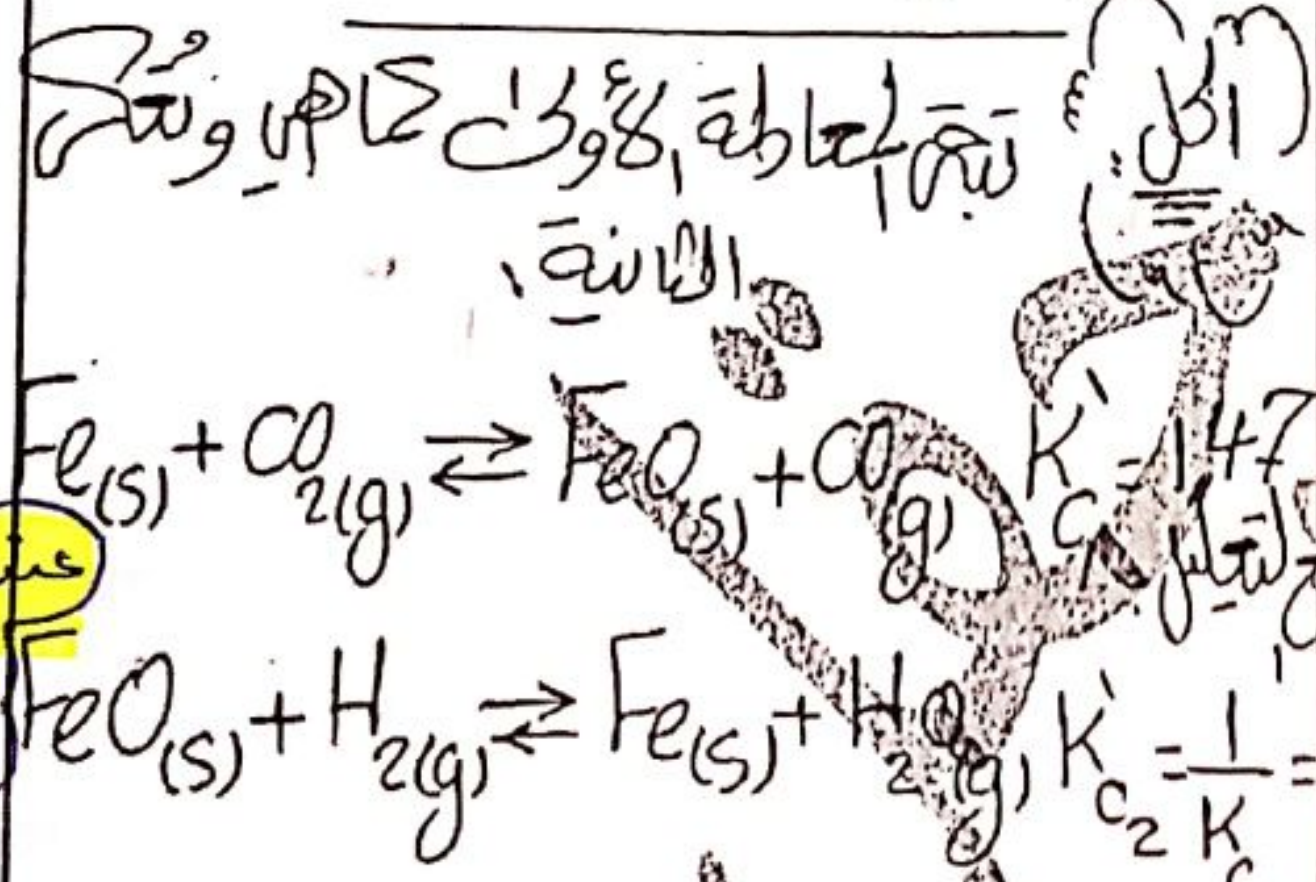 الحل:
نبقي المعادلة الأولى كما هي ونعكس
الثانية.
Fe(s) + CO2(g) ⇌ FeO(s) + CO(g) K'c = 1.47
FeO(s) + H2(g) ⇌ Fe(s) + H2O(g) K'c2 = 1/Kc =